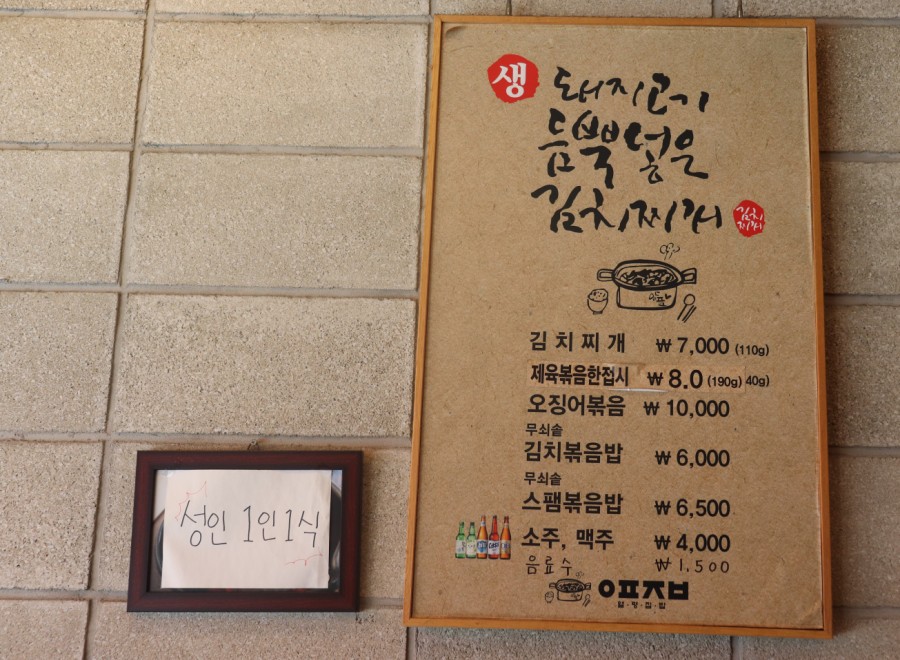 생 돼지고기
듬뿍 넣은
김치찌개
김치
찌개
김치찌개 ₩ 7,000 (110g)
제육볶음한접시 ₩ 8.0 (190g) 40g)
오징어볶음 ₩ 10,000
무쇠솥
김치볶음밥 ₩ 6,000
무쇠솥
스팸볶음밥 ₩ 6,500
소주, 맥주 ₩ 4,000
음료수 ₩ 1,500
성인 1인 1식